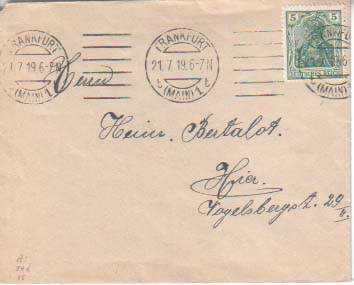 FRANKFURT
21.7.19.6-7N
(MAIN) 1
FRANKFURT
21.7.19.6-7N
* (MAIN) 1 t
5 5
DEUTSCHES REICH
FRANKFURT
(MAIN) 1
Herrn
Heinr. Bertalot.
Hier.
Vogelsbergst. 29